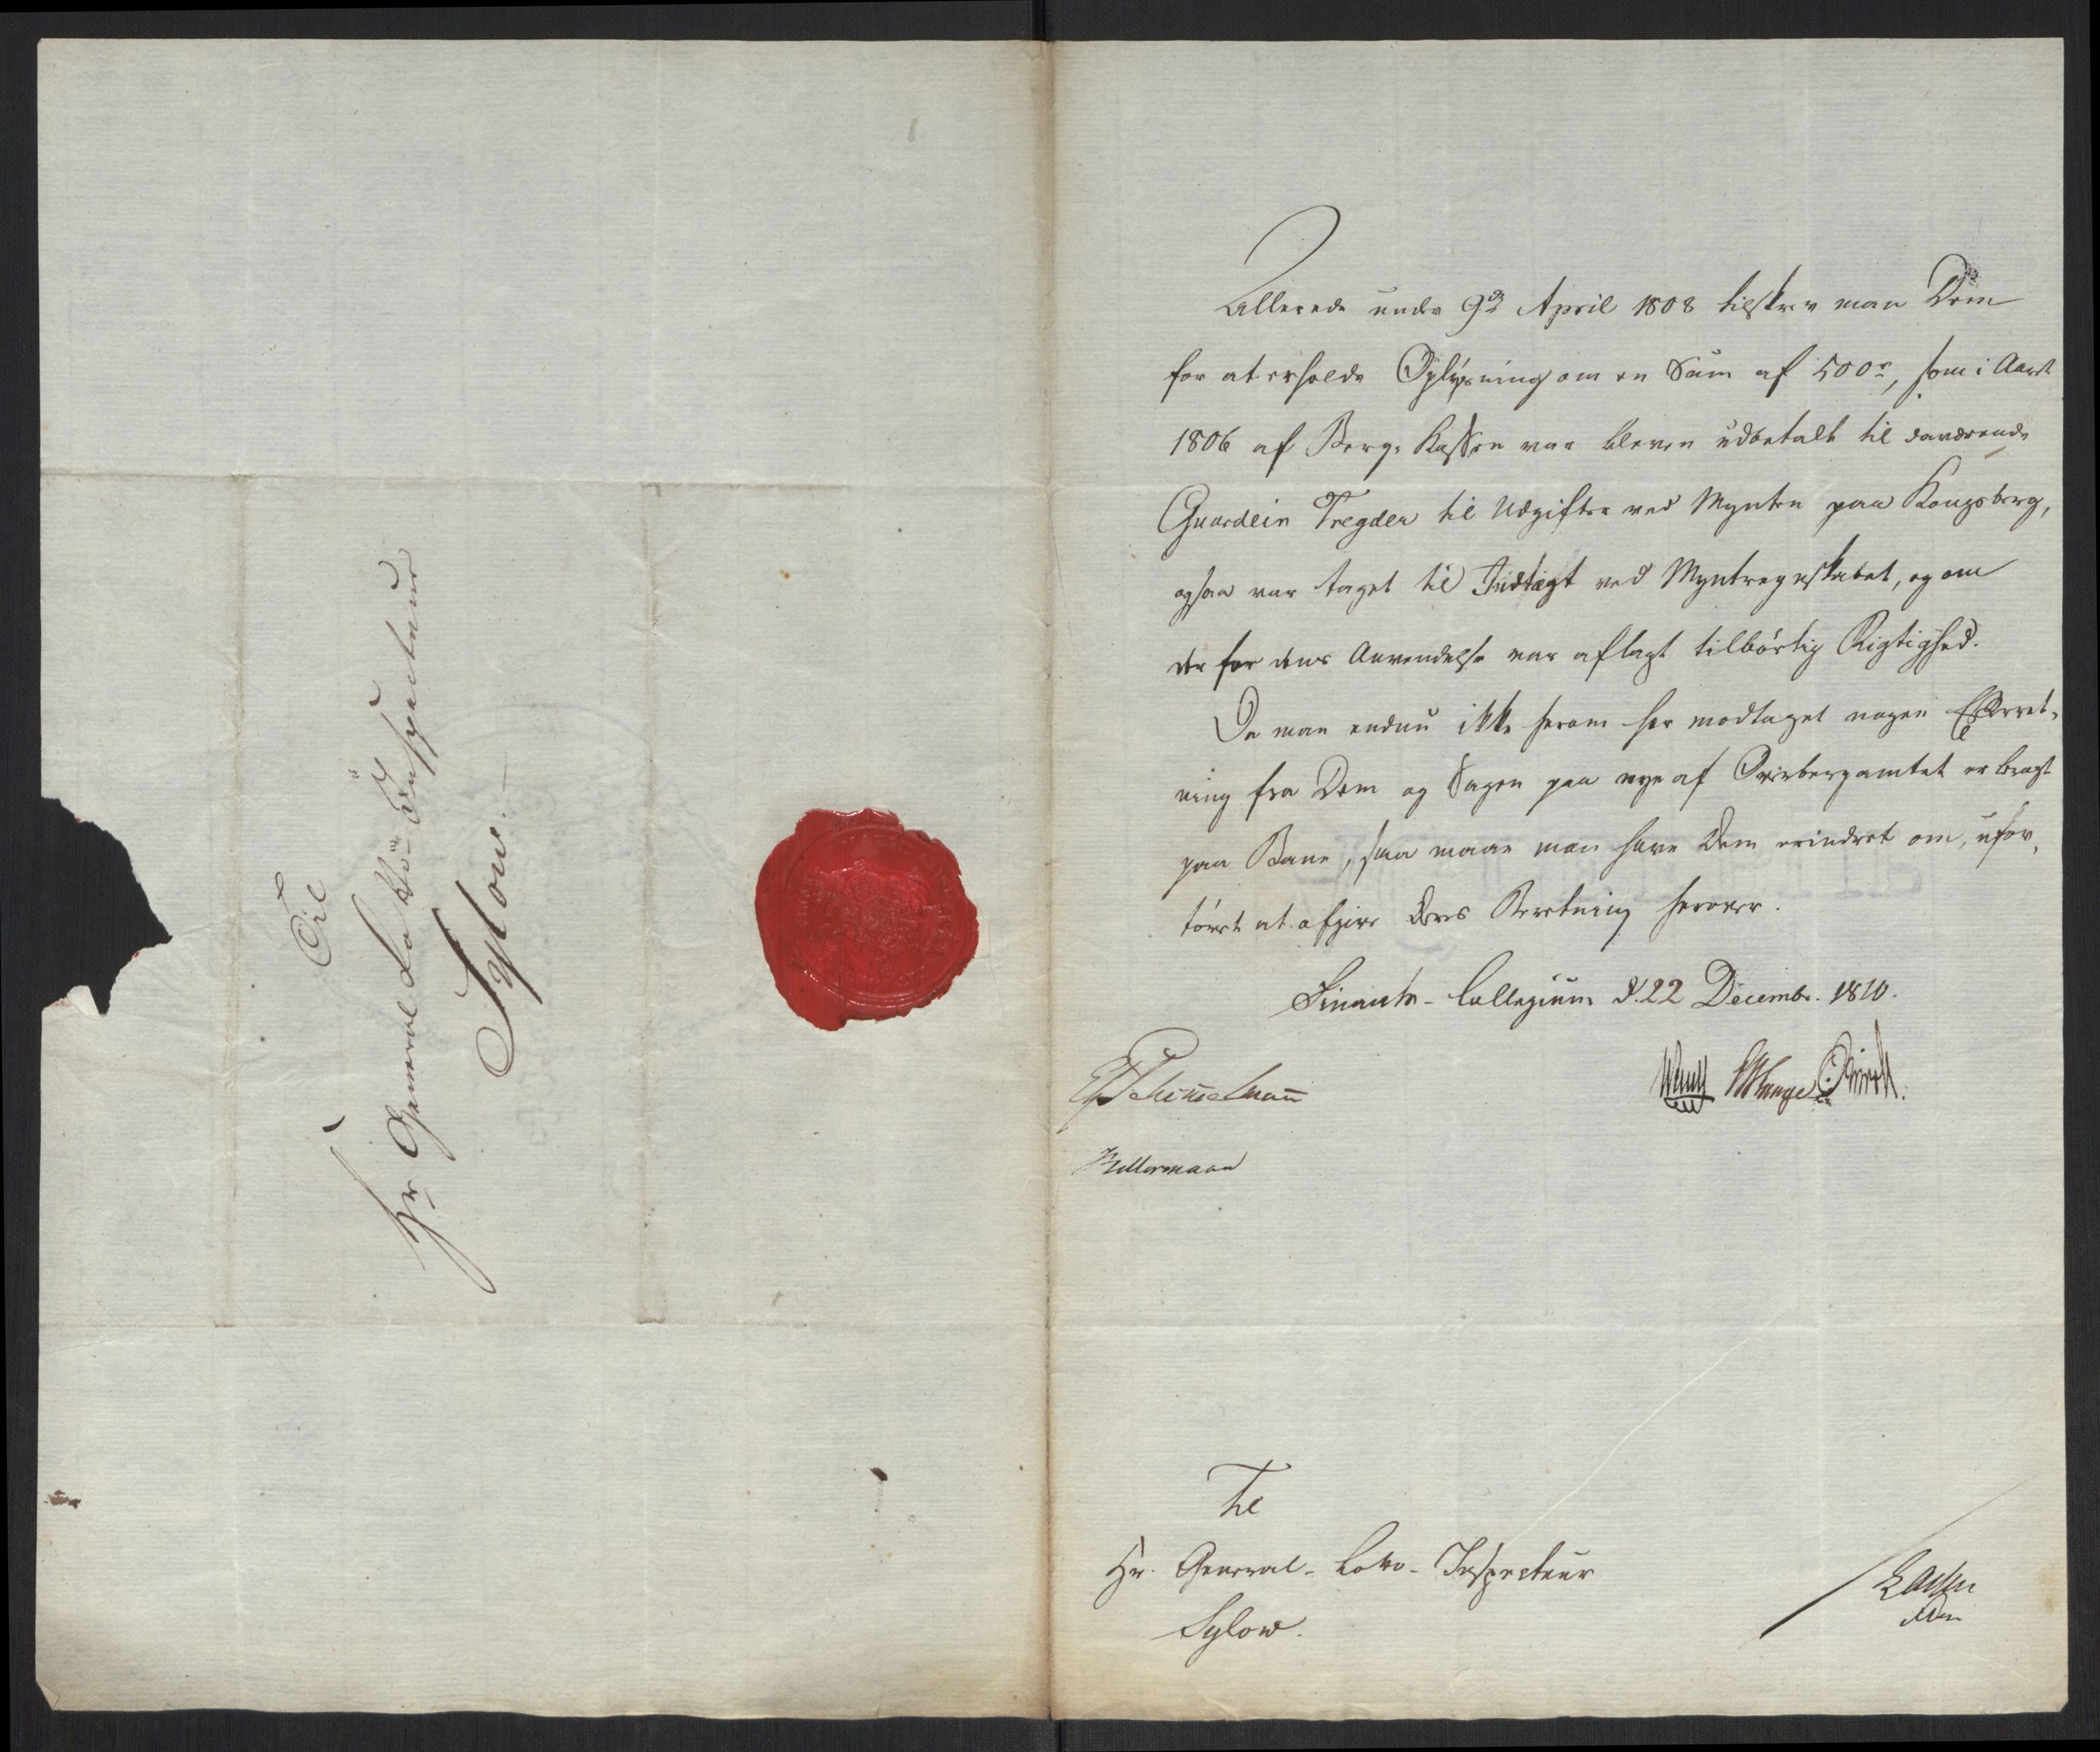 Til
Hr General Lotto-Inspecteur
Sylow.
Allerede under 9de April 1808 tilskrev man Dem
for at erholde Oplysning om en Sum af 500r, som i Aaret
1806 af Berg-Kassen var bleven udbetalt til daværende
Guardein Tregder til Udgifter ved Mynten paa Kongsberg,
ogsaa var taget til Indtægt ved Myntregnskabet, og om
der for dens Anvendelse var aflagt tilbörlig Rigtighed.
Da man endnu ikke herom har modtaget nogen Efterret-
ning fra Dem og Sagen paa nye af Overbergamtet er bragt
paa Bane, saa maae man have Dem erindret om, ufor-
tövet at afgive Deres Beretning herover.
Finants-Collegium d. 22 Decembr. 1810.
Schimmelmann
Kellermann
Til
Hr. General-Lotto-Inspecteur
Sylow.